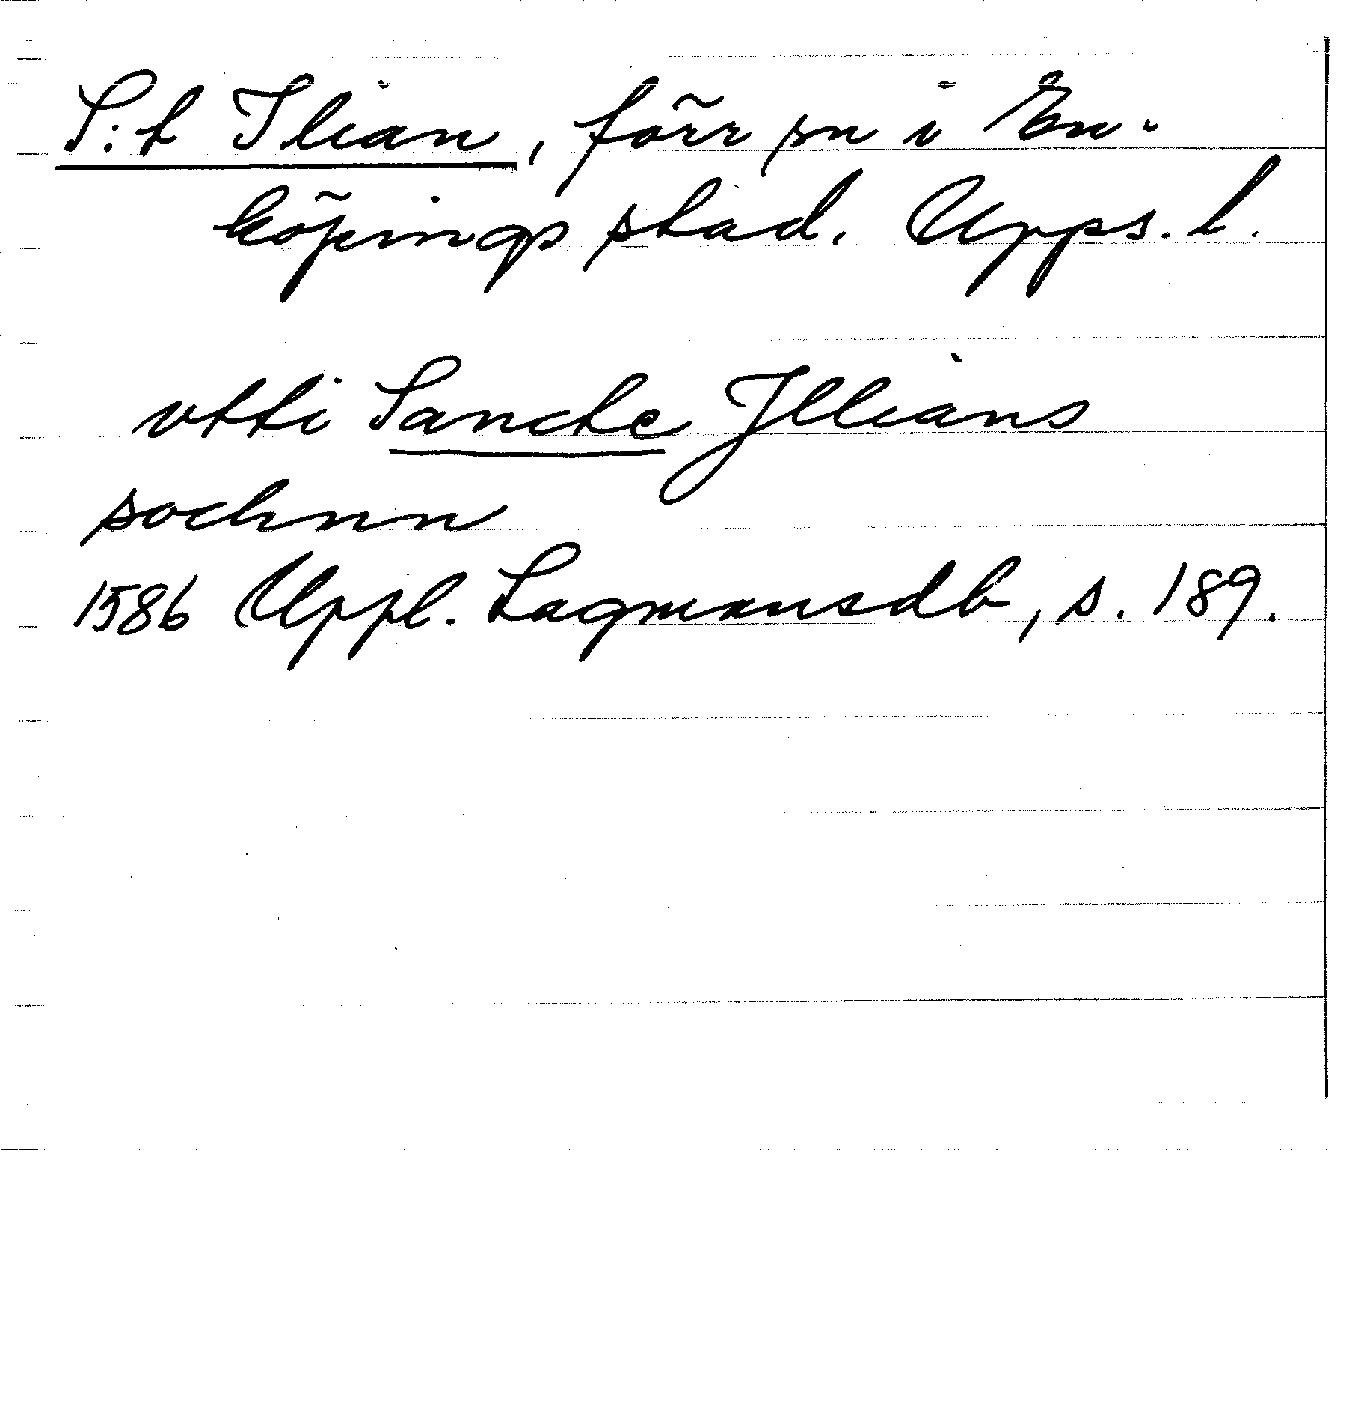 S:t Ilian, förr sn i En-
köpings stad. Upps. l.
vtti Sancte Jllians
sochnn
1586 Uppl. Lagmansdb, s. 189.